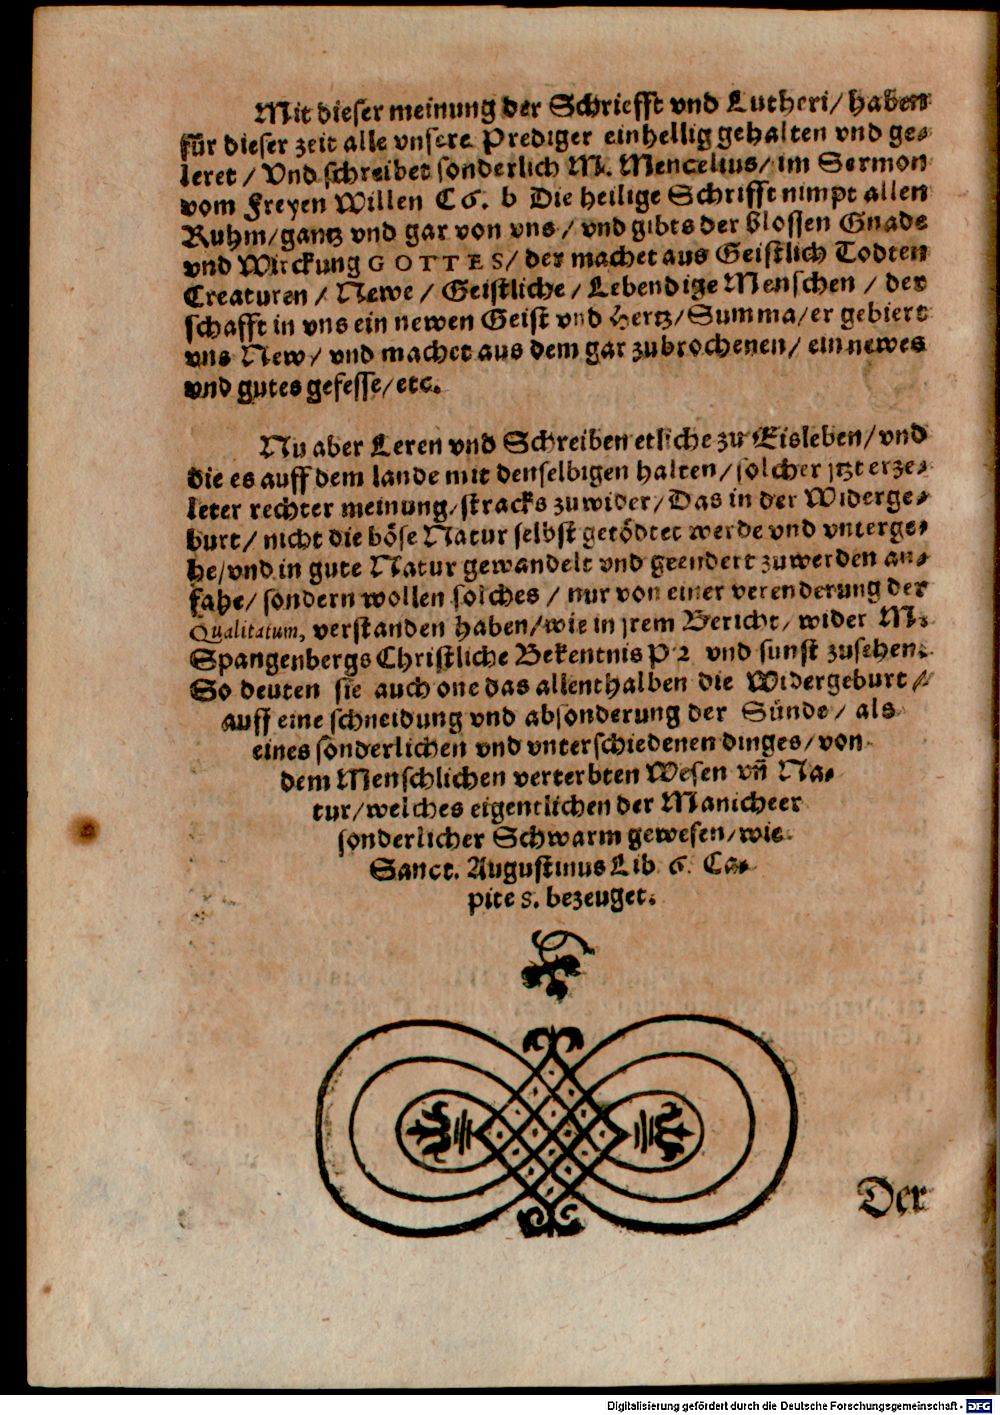 Mit dieser meinung der Schriefft vnd Lutheri/ haben
für dieser zeit alle vnsere Prediger einhellig gehalten vnd ge-
leret / Vnd schreibet sonderlich M. Mencelius/ im Sermon
vom Freyen Willen C 6. b Die heilige Schrifft nimpt allen
Ruhm/ gantz vnd gar von vns / vnd gibts der blossen Gnade
vnd Wirckung GOTTES/ der machet aus Geistlich Todten
Creaturen / Newe / Geistliche / Lebendige Menschen / der
schafft in vns ein newen Geist vnd Hertz/ Summa/ er gebiert
vns New/ vnd machet aus dem gar zubrochenen/ ein newes
vnd gutes gefesse/ etc.
Nu aber Leren vnd Schreiben etliche zu Eisleben/ vnd
die es auff dem lande mit denselbigen halten/ solcher jtzt erze-
leter rechter meinung/ stracks zuwider/ Das in der Widerge-
burt/ nicht die böse Natur selbst getödtet werde vnd vnterge-
he/ vnd in gute Natur gewandelt vnd geendert zuwerden an-
fahe/ sondern wollen solches / nur von einer verenderung der
Qualitatum, verstanden haben/ wie in jrem Bericht/ wider M.
Spangenbergs Christliche Bekentnis P 2 vnd sunst zusehen.
So deuten sie auch one das allenthalben die Widergeburt /
auff eine schneidung vnd absonderung der Sünde/ als
eines sonderlichen vnd vnterschiedenen dinges/ von
dem Menschlichen verterbten Wesen vñ Na-
tur/ welches eigentlichen der Manicheer
sonderlicher Schwarm gewesen/ wie
Sanct. Augustinus Lib. 6. Ca-
pite 5. bezeuget.
Der
Digitalisierung gefördert durch die Deutsche Forschungsgemeinschaft - DFG